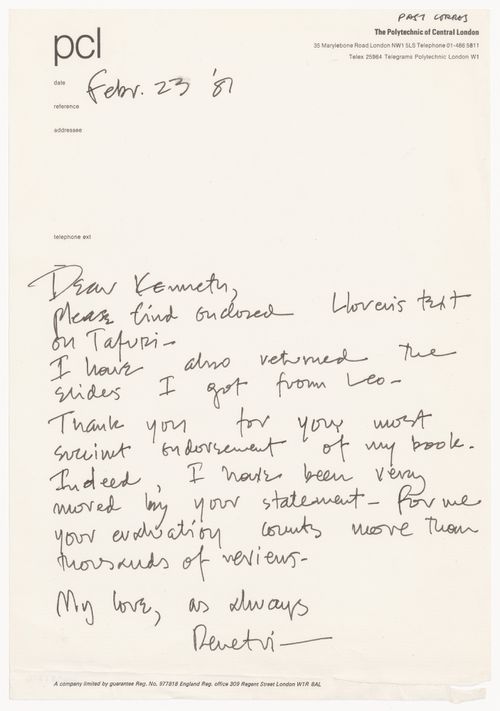 PAST CORRES
pcl
The Polytechnic of Central London
35 Marylebone Road London NW1 5LS Telephone 01-486 5811
Telex 25964 Telegrams Polytechnic London W1
date Febr. 23 '81
reference
addressee
telephone ext
Dear Kenneth,
please find enclosed Lloren's text
on Tafuri -
I have also returned the
slides I got from Leo -
Thank you for your most
succint endorsement of my book.
Indeed, I have been very
moved by your statement - For me
your evaluation counts more than
thousands of reviews -
My love, as always
Demetri -
A company limited by guarantee Reg. No. 977818 England Reg. office 309 Regent Street London W1R 8AL